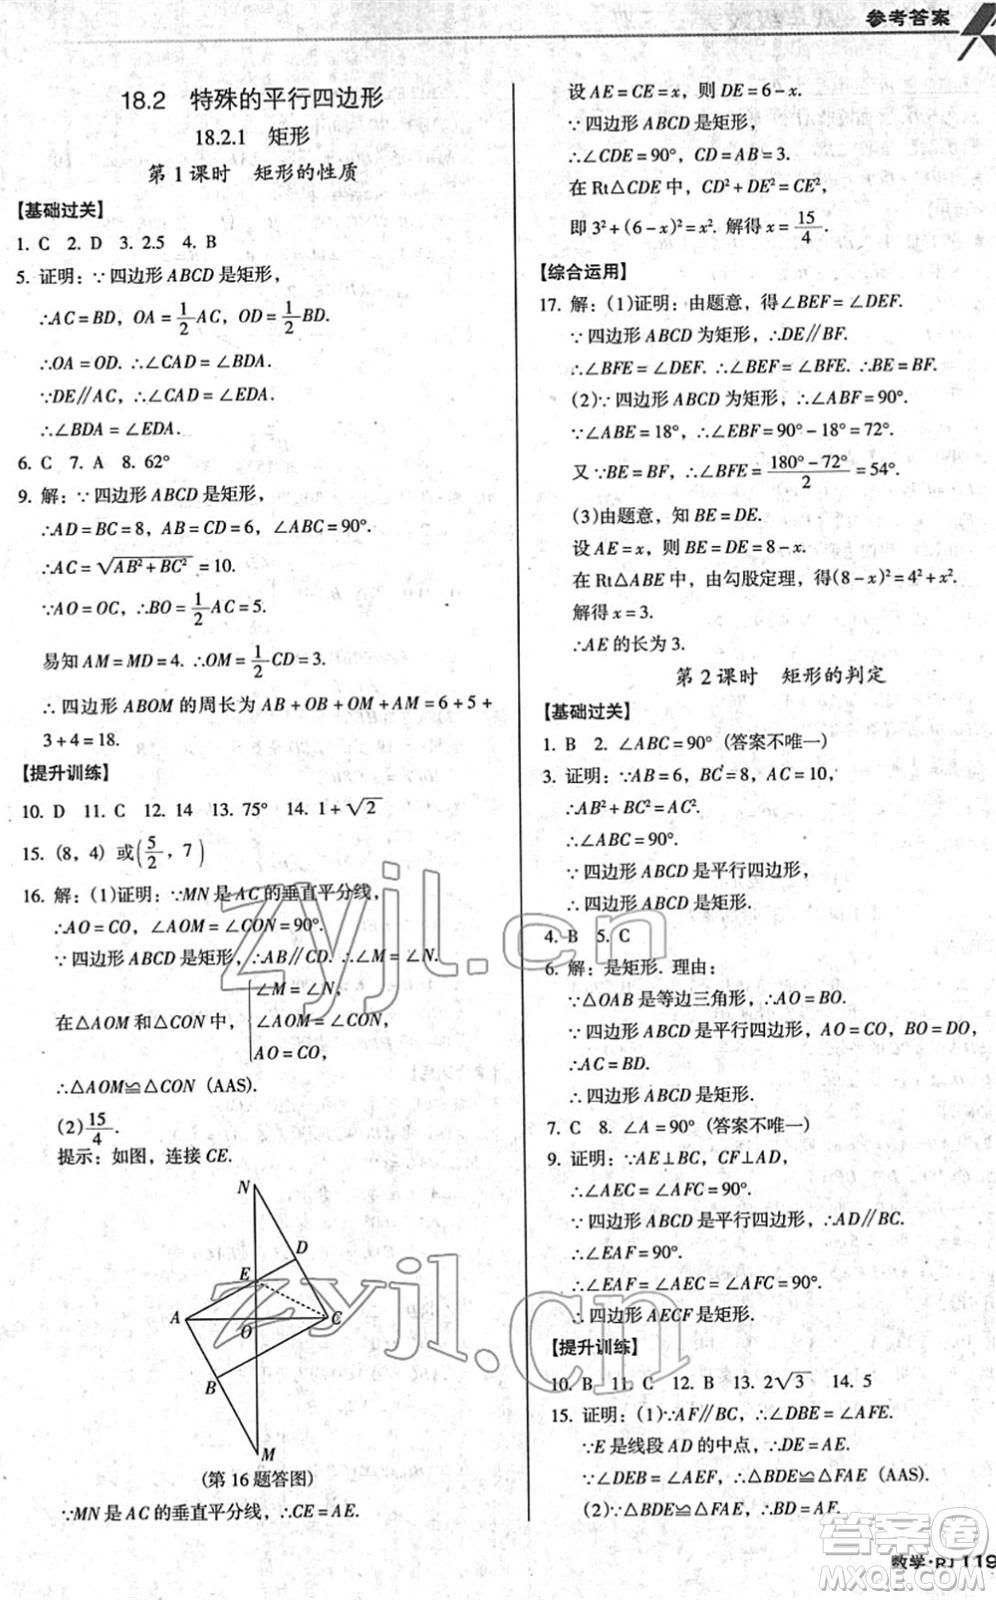 参考答案
18.2 特殊的平行四边形
18.2.1 矩形
第1课时 矩形的性质
【基础过关】
1. C 2. D 3. 2.5 4. B
5. 证明：∵四边形ABCD是矩形，
∴AC＝BD，OA＝1/2AC，OD＝1/2BD.
∴OA＝OD. ∴∠CAD＝∠BDA.
∵DE∥AC，∴∠CAD＝∠EDA.
∴∠BDA＝∠EDA.
6. C 7. A 8. 62°
9. 解：∵四边形ABCD是矩形，
∴AD＝BC＝8，AB＝CD＝6，∠ABC＝90°.
∴AC＝√(AB²＋BC²)＝10.
∵AO＝OC，∴BO＝1/2AC＝5.
易知AM＝MD＝4. ∴OM＝1/2CD＝3.
∴四边形ABOM的周长为AB＋OB＋OM＋AM＝6＋5＋
3＋4＝18.
【提升训练】
10. D 11. C 12. 14 13. 75° 14. 1＋√2
15. (8，4) 或(5/2，7)
16. 解：(1)证明：∵MN是AC的垂直平分线，
∴AO＝CO，∠AOM＝∠CON＝90°.
∵四边形ABCD是矩形，∴AB∥CD. ∴∠M＝∠N.
∠M＝∠N，
在△AOM和△CON中，∠AOM＝∠CON，
AO＝CO，
∴△AOM≌△CON (AAS).
(2)15/4.
提示：如图，连接CE.
N
D
E
A
O
C
B
M
(第16题答图)
∵MN是AC的垂直平分线，∴CE＝AE.
设AE＝CE＝x，则DE＝6－x.
∵四边形ABCD是矩形，
∴∠CDE＝90°，CD＝AB＝3.
在Rt△CDE中，CD²＋DE²＝CE²，
即3²＋(6－x)²＝x². 解得x＝15/4.
【综合运用】
17. 解：(1)证明：由题意，得∠BEF＝∠DEF.
∵四边形ABCD为矩形，∴DE∥BF.
∴∠BFE＝∠DEF. ∴∠BEF＝∠BFE.
(2)∵四边形ABCD为矩形，∴∠ABF＝90°.
∵∠ABE＝18°，∴∠EBF＝90°－18°＝72°.
又∵BE＝BF，∴∠BFE＝(180°－72°)/2＝54°.
(3)由题意，知BE＝DE.
设AE＝x，则BE＝DE＝8－x.
在Rt△ABE中，由勾股定理，得(8－x)²＝4²＋x².
解得x＝3.
∴AE的长为3.
第2课时 矩形的判定
【基础过关】
1. B 2. ∠ABC＝90° (答案不唯一)
3. 证明：∵AB＝6，BC＝8，AC＝10，
∴AB²＋BC²＝AC².
∴∠ABC＝90°.
∵四边形ABCD是平行四边形，
∴四边形ABCD是矩形.
4. B 5. C
6. 解：是矩形. 理由：
∵△OAB是等边三角形，∴AO＝BO.
∵四边形ABCD是平行四边形，AO＝CO，BO＝DO，
∴AC＝BD.
∴四边形ABCD是矩形.
7. C 8. ∠A＝90° (答案不唯一)
9. 证明：∵AE⊥BC，CF⊥AD，
∴∠AEC＝∠AFC＝90°.
∵四边形ABCD是平行四边形，∴AD∥BC.
∴∠EAF＝90°.
∴∠EAF＝∠AEC＝∠AFC＝90°.
∴四边形AECF是矩形.
【提升训练】
10. B 11. C 12. B 13. 2√3 14. 5
15. 证明：(1)∵AF∥BC，∴∠DBE＝∠AFE.
∵E是线段AD的中点，∴DE＝AE.
∵∠DEB＝∠AEF，∴△BDE≌△FAE (AAS).
(2)∵△BDE≌△FAE，∴BD＝AF.
zyjl.cn
zyjl.cn
答案圈
MXQE.COM
数学·RJ 119